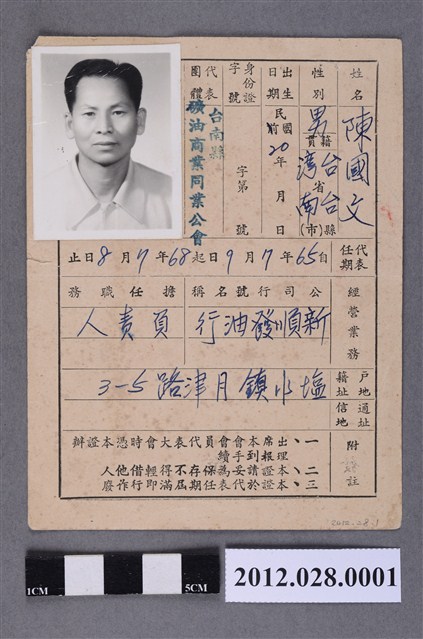 姓名 陳國文
性別 男
籍貫 台湾省台南縣(市)
出生日期 民國前20年 月 日
身份證字號 字第 號
代表團體 台南縣礦油商業同業公會
代表任期 自65年7月9日起68年7月8日止
經營業務
公司行號名稱 新順發油行
擔任職務 負責人
戶籍地址 通信地址 塩水鎮月津路3-5
附註
一、出席本會會員代表大會時憑本證辦理報到手續
二、本證請妥為保存不得輕借他人
三、本證於代表任期屆滿即行作廢
2012.028.1
1CM
5CM
2012.028.0001